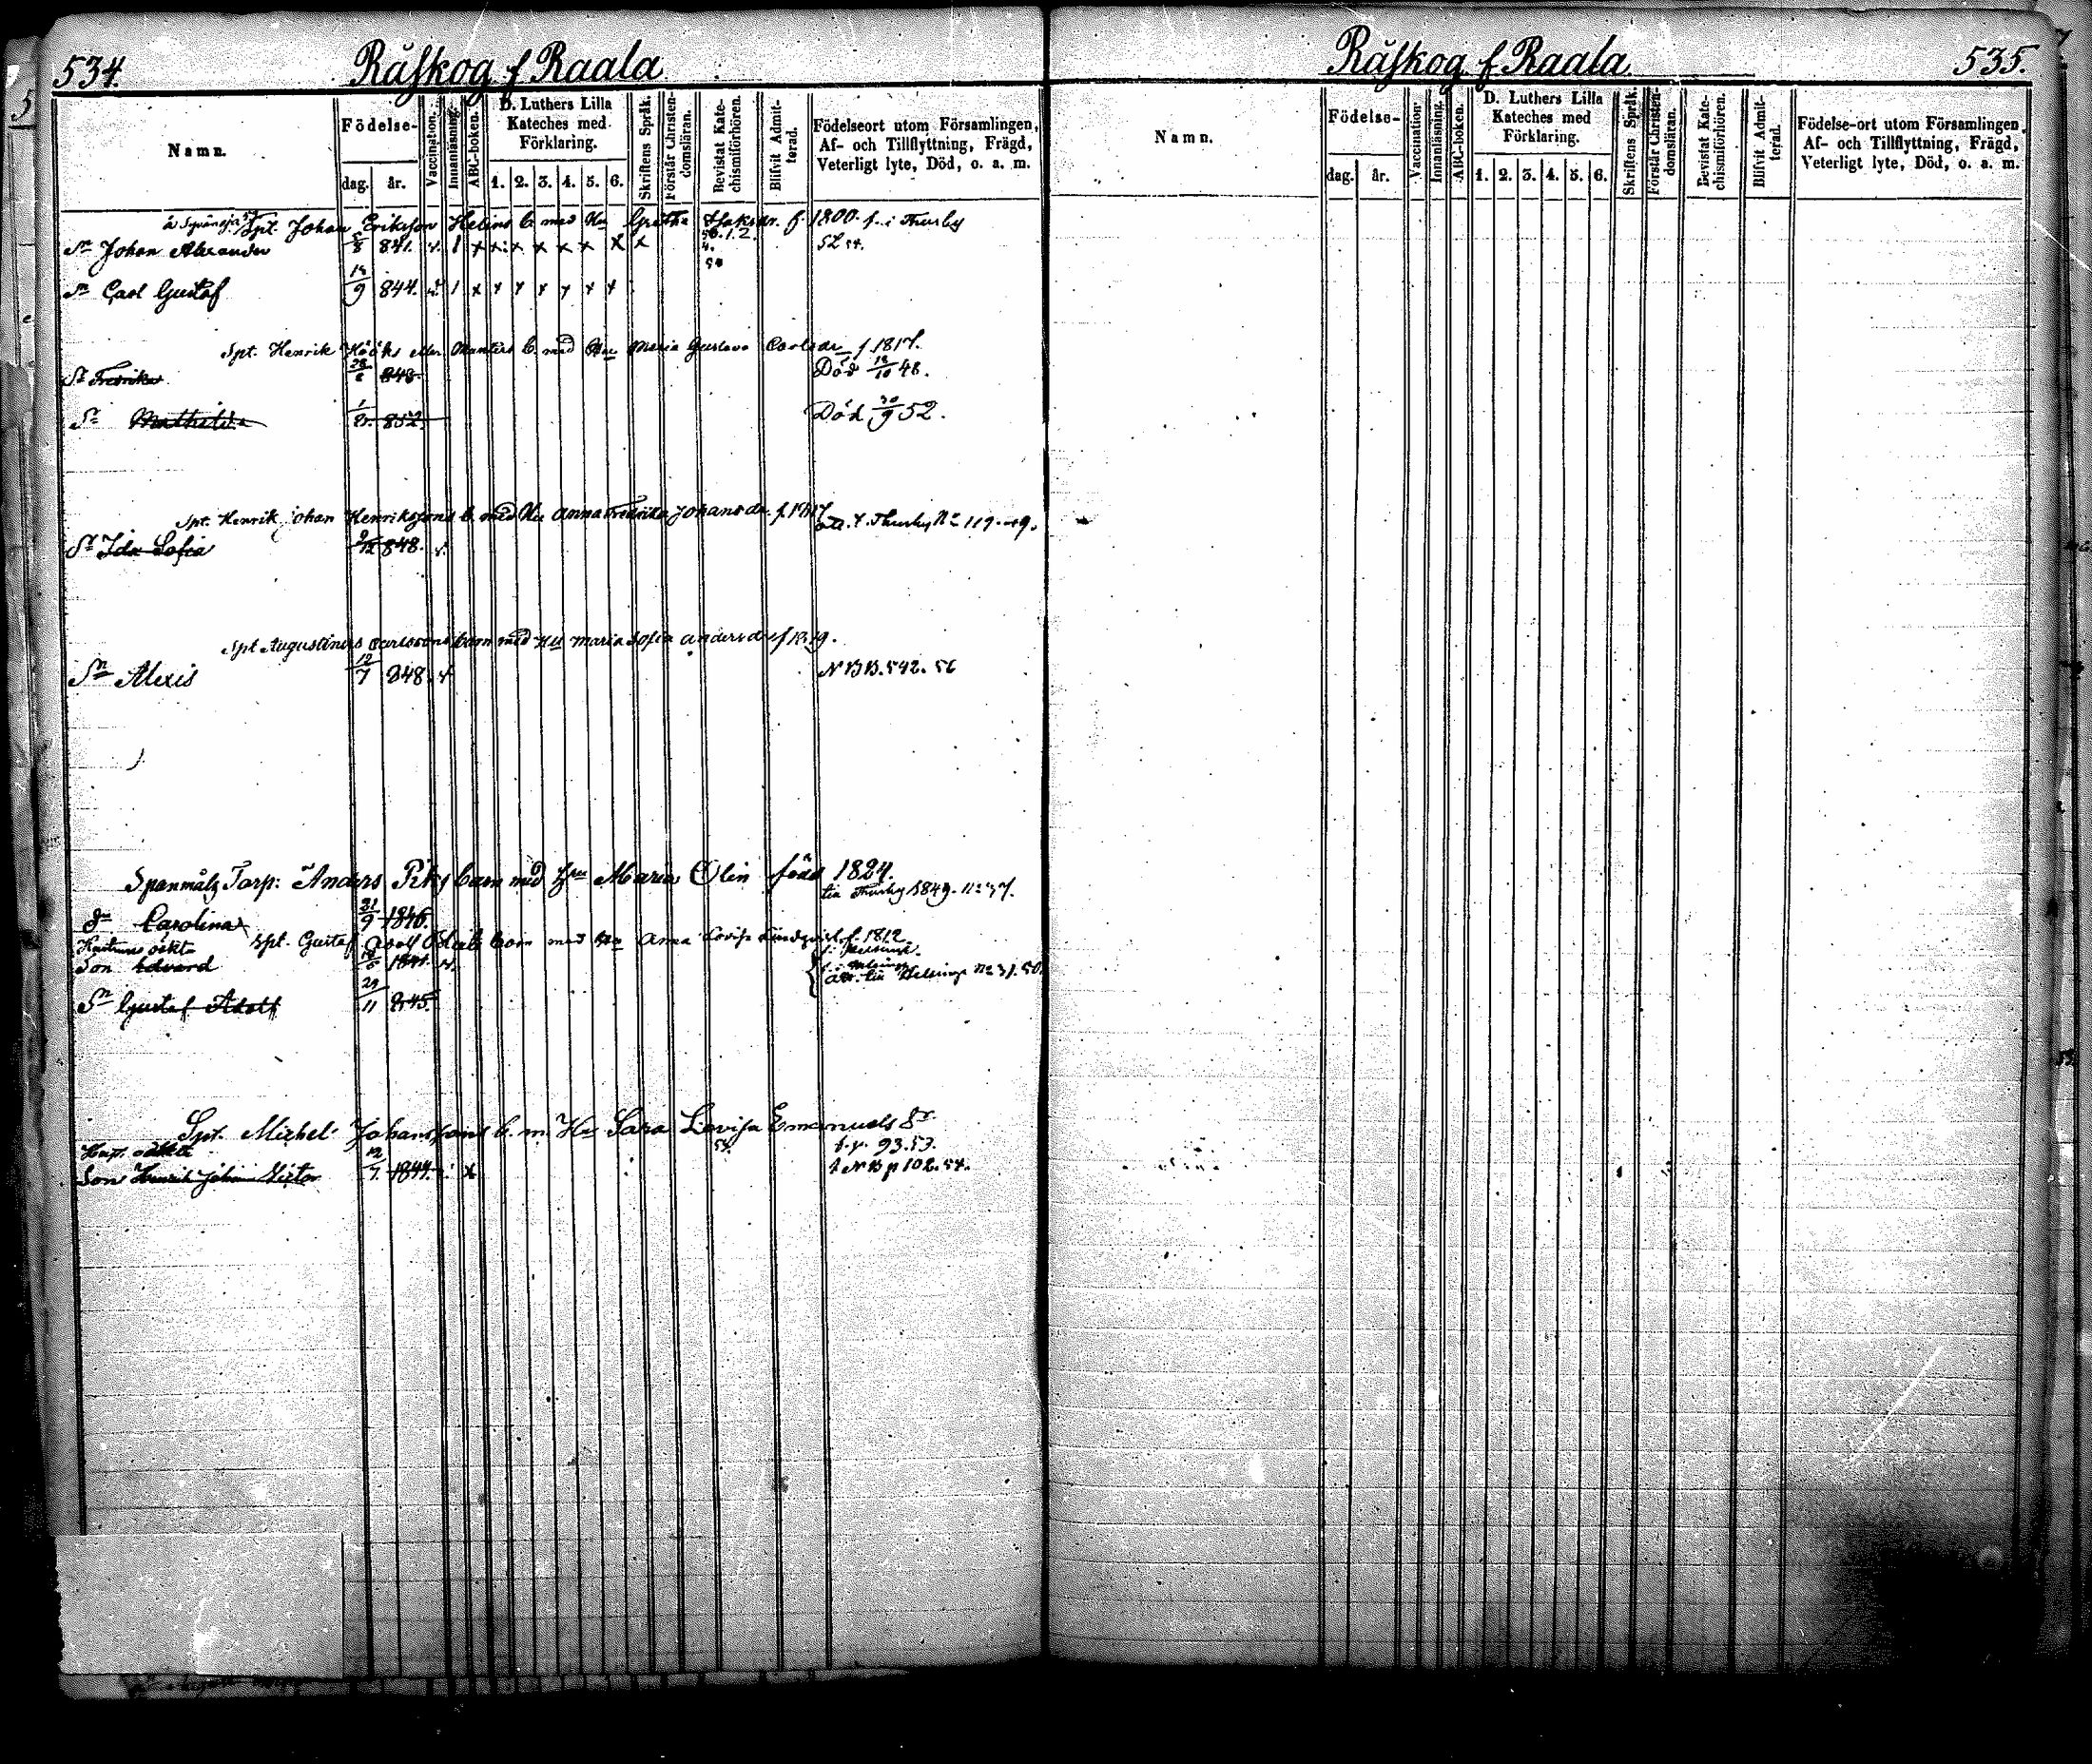 534. Råskog f Raala
Namn. Födelse- dag. år. Vaccination. Innanläsning. ABC-boken. D. Luthers Lilla Kateches med Förklaring. 1. 2. 3. 4. 5. 6. Skriftens Språk. Förstår Christendomsläran. Bevistat Katechismiförhören. Blifvit Admitterad. Födelseort utom Församlingen, Af- och Tillflyttning, Frägd, Veterligt lyte, Död, o. a. m.
Spt. Johan Eriksson Helins b. med Hu Greta f. 1800. f. i Thusby
Sn Johan Alexander 841. 1 x x x x x x x x 52 54.
Sn Carl Gustaf 19/9 844. 1 x x x x x x x
Spt. Henrik Hööks eller Munters b. med Hu Maria Gustava Carlsdr f 1817.
Fredrika 848. Död 48.
Mathilda 852. Död 30/9 52.
Spt. Henrik Johan Henrikssons b. med Hu Anna Fredrika Johansdr. f. 1817
att. t. Thusby No 119. 49.
Ida Sofia 848.
Spt Augustinus Carlssons barn med Hu Maria Sofia Andersdr f
Sn Alexis 10/7 848. NBB. 542. 56
Spanmåls Torp: Anders Piks barn med Hu Maria Olin född 1824.
till Thusby 1849. No 37.
dr Carolina 21/9 1846.
Spt. Gustaf Adolf barn med Hu Anna Lovisa Lindqvist f. 1812
Hustruns oäkta
Son Edvard 1841.
att. till Helsinge No 31. 50.
Sn Gustaf Adolf 29/11 845.
Spt. Michel Johanssons b. m. Hu Sara Lovisa Emanuels dr
Hust. oäkta 54. f. p. 93. 53.
Son Henrik Johan Victor 12/7. 1844. x t NB p 102. 54.
Råskog f Raala 535.
Namn. Födelse- dag. år. Vaccination. Innanläsning. ABC-boken. D. Luthers Lilla Kateches med Förklaring. 1. 2. 3. 4. 5. 6. Skriftens Språk. Förstår Christendomsläran. Bevistat Katechismiförhören. Blifvit Admitterad. Födelse-ort utom Församlingen, Af- och Tillflyttning, Frägd, Veterligt lyte, Död, o. a. m.